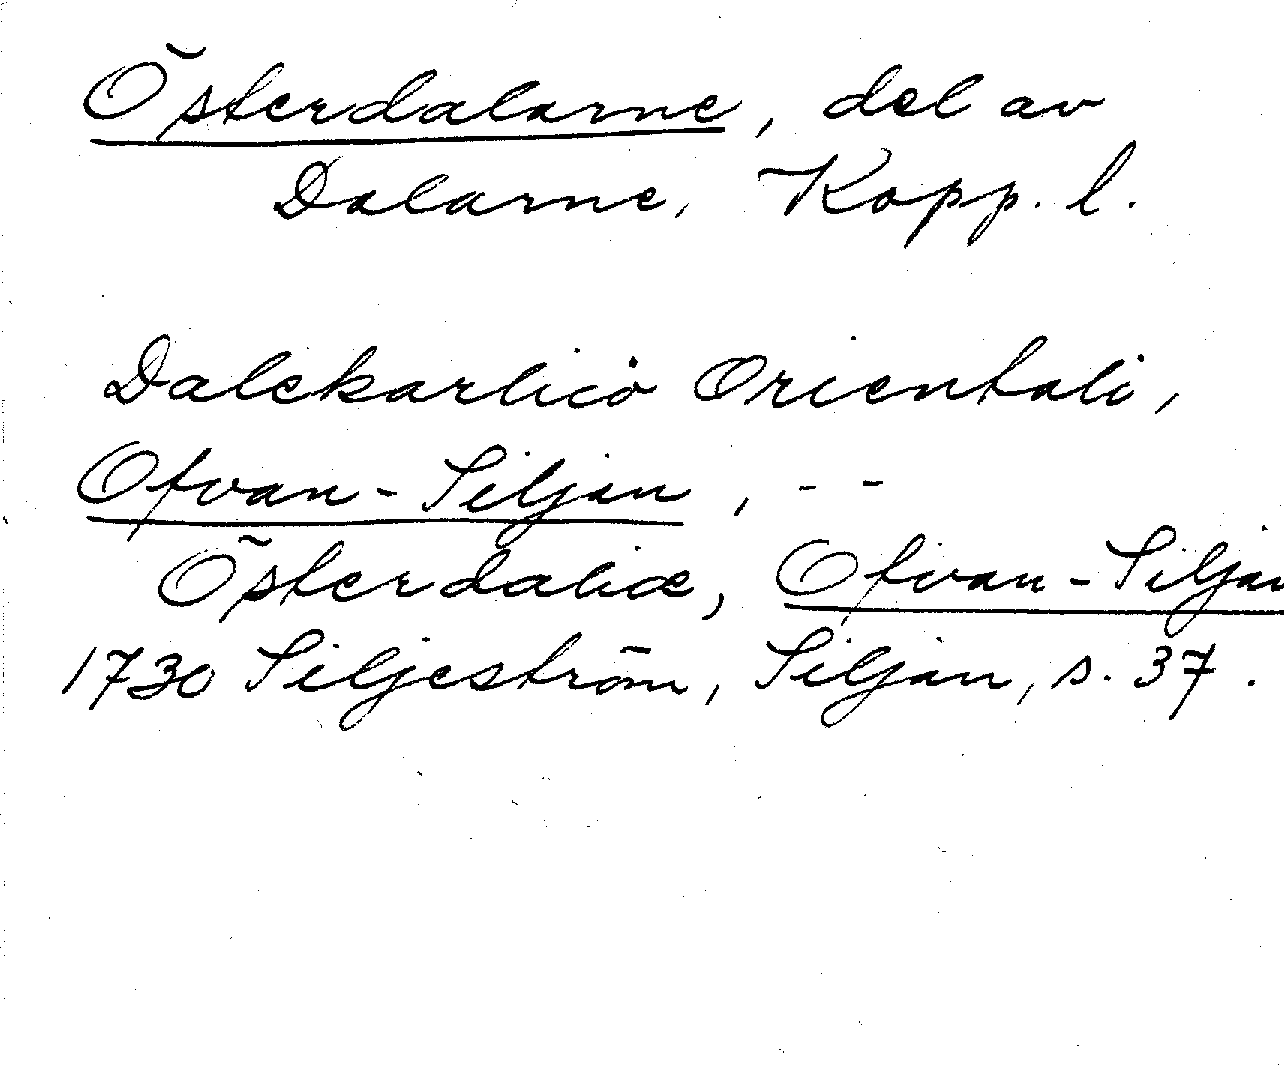 Österdalarne, del av
Dalarne, Kopp. l.
Dalekarlia Orientali,
Ofvan-Siljan, - -
Österdaliæ, Ofvan-Siljan
1730 Siljeström, Siljan, s. 37.